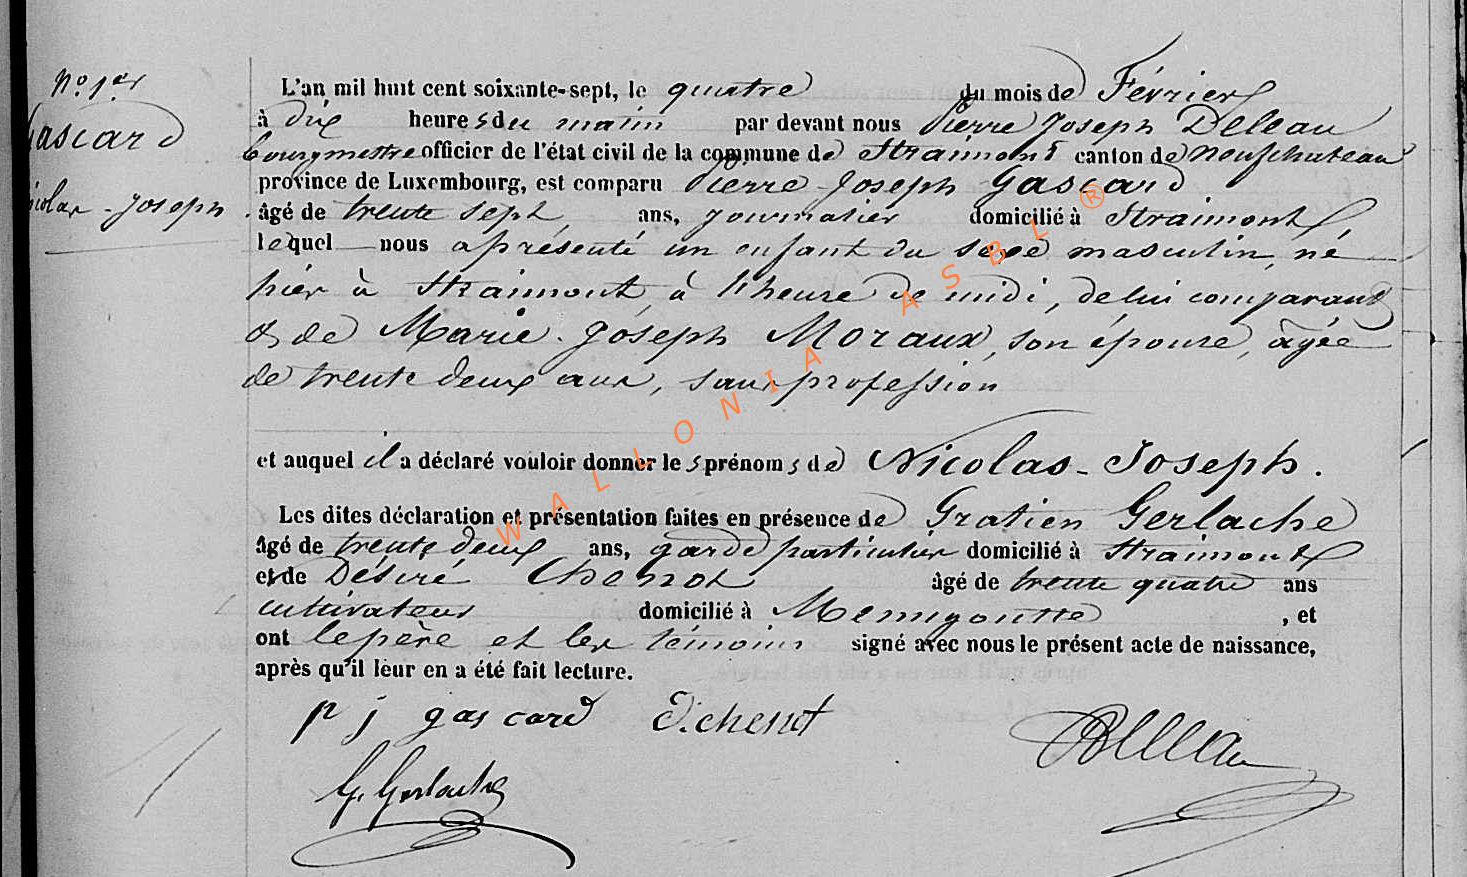 No 1er
Gascard
Nicolas-Joseph.
L'an mil huit cent soixante-sept, le quatre du mois de Février
à dix heures du matin par devant nous Pierre Joseph Deleau
bourgmestre officier de l'état civil de la commune de Straimont canton de Neufchateau
province de Luxembourg, est comparu Pierre-Joseph Gascard
âgé de trente sept ans, journalier domicilié à Straimont
lequel nous a présenté un enfant du sexe masculin, né
hier à Straimont, à l'heure de midi, de lui comparant
& de Marie-Joseph Moraux, son épouse, âgée
de trente deux ans, sans profession
et auquel il a déclaré vouloir donner les prénoms de Nicolas-Joseph.
Les dites déclaration et présentation faites en présence de Gratien Gerlache
âgé de trente deux ans, garde particulier domicilié à Straimont
et de Désiré Chenot âgé de trente quatre ans
cultivateur domicilié à Menugoutte, et
ont le père et les témoins signé avec nous le présent acte de naissance,
après qu'il leur en a été fait lecture.
p j gascard D. chenot
G. Gerlache
WALLONIA ASBL ®